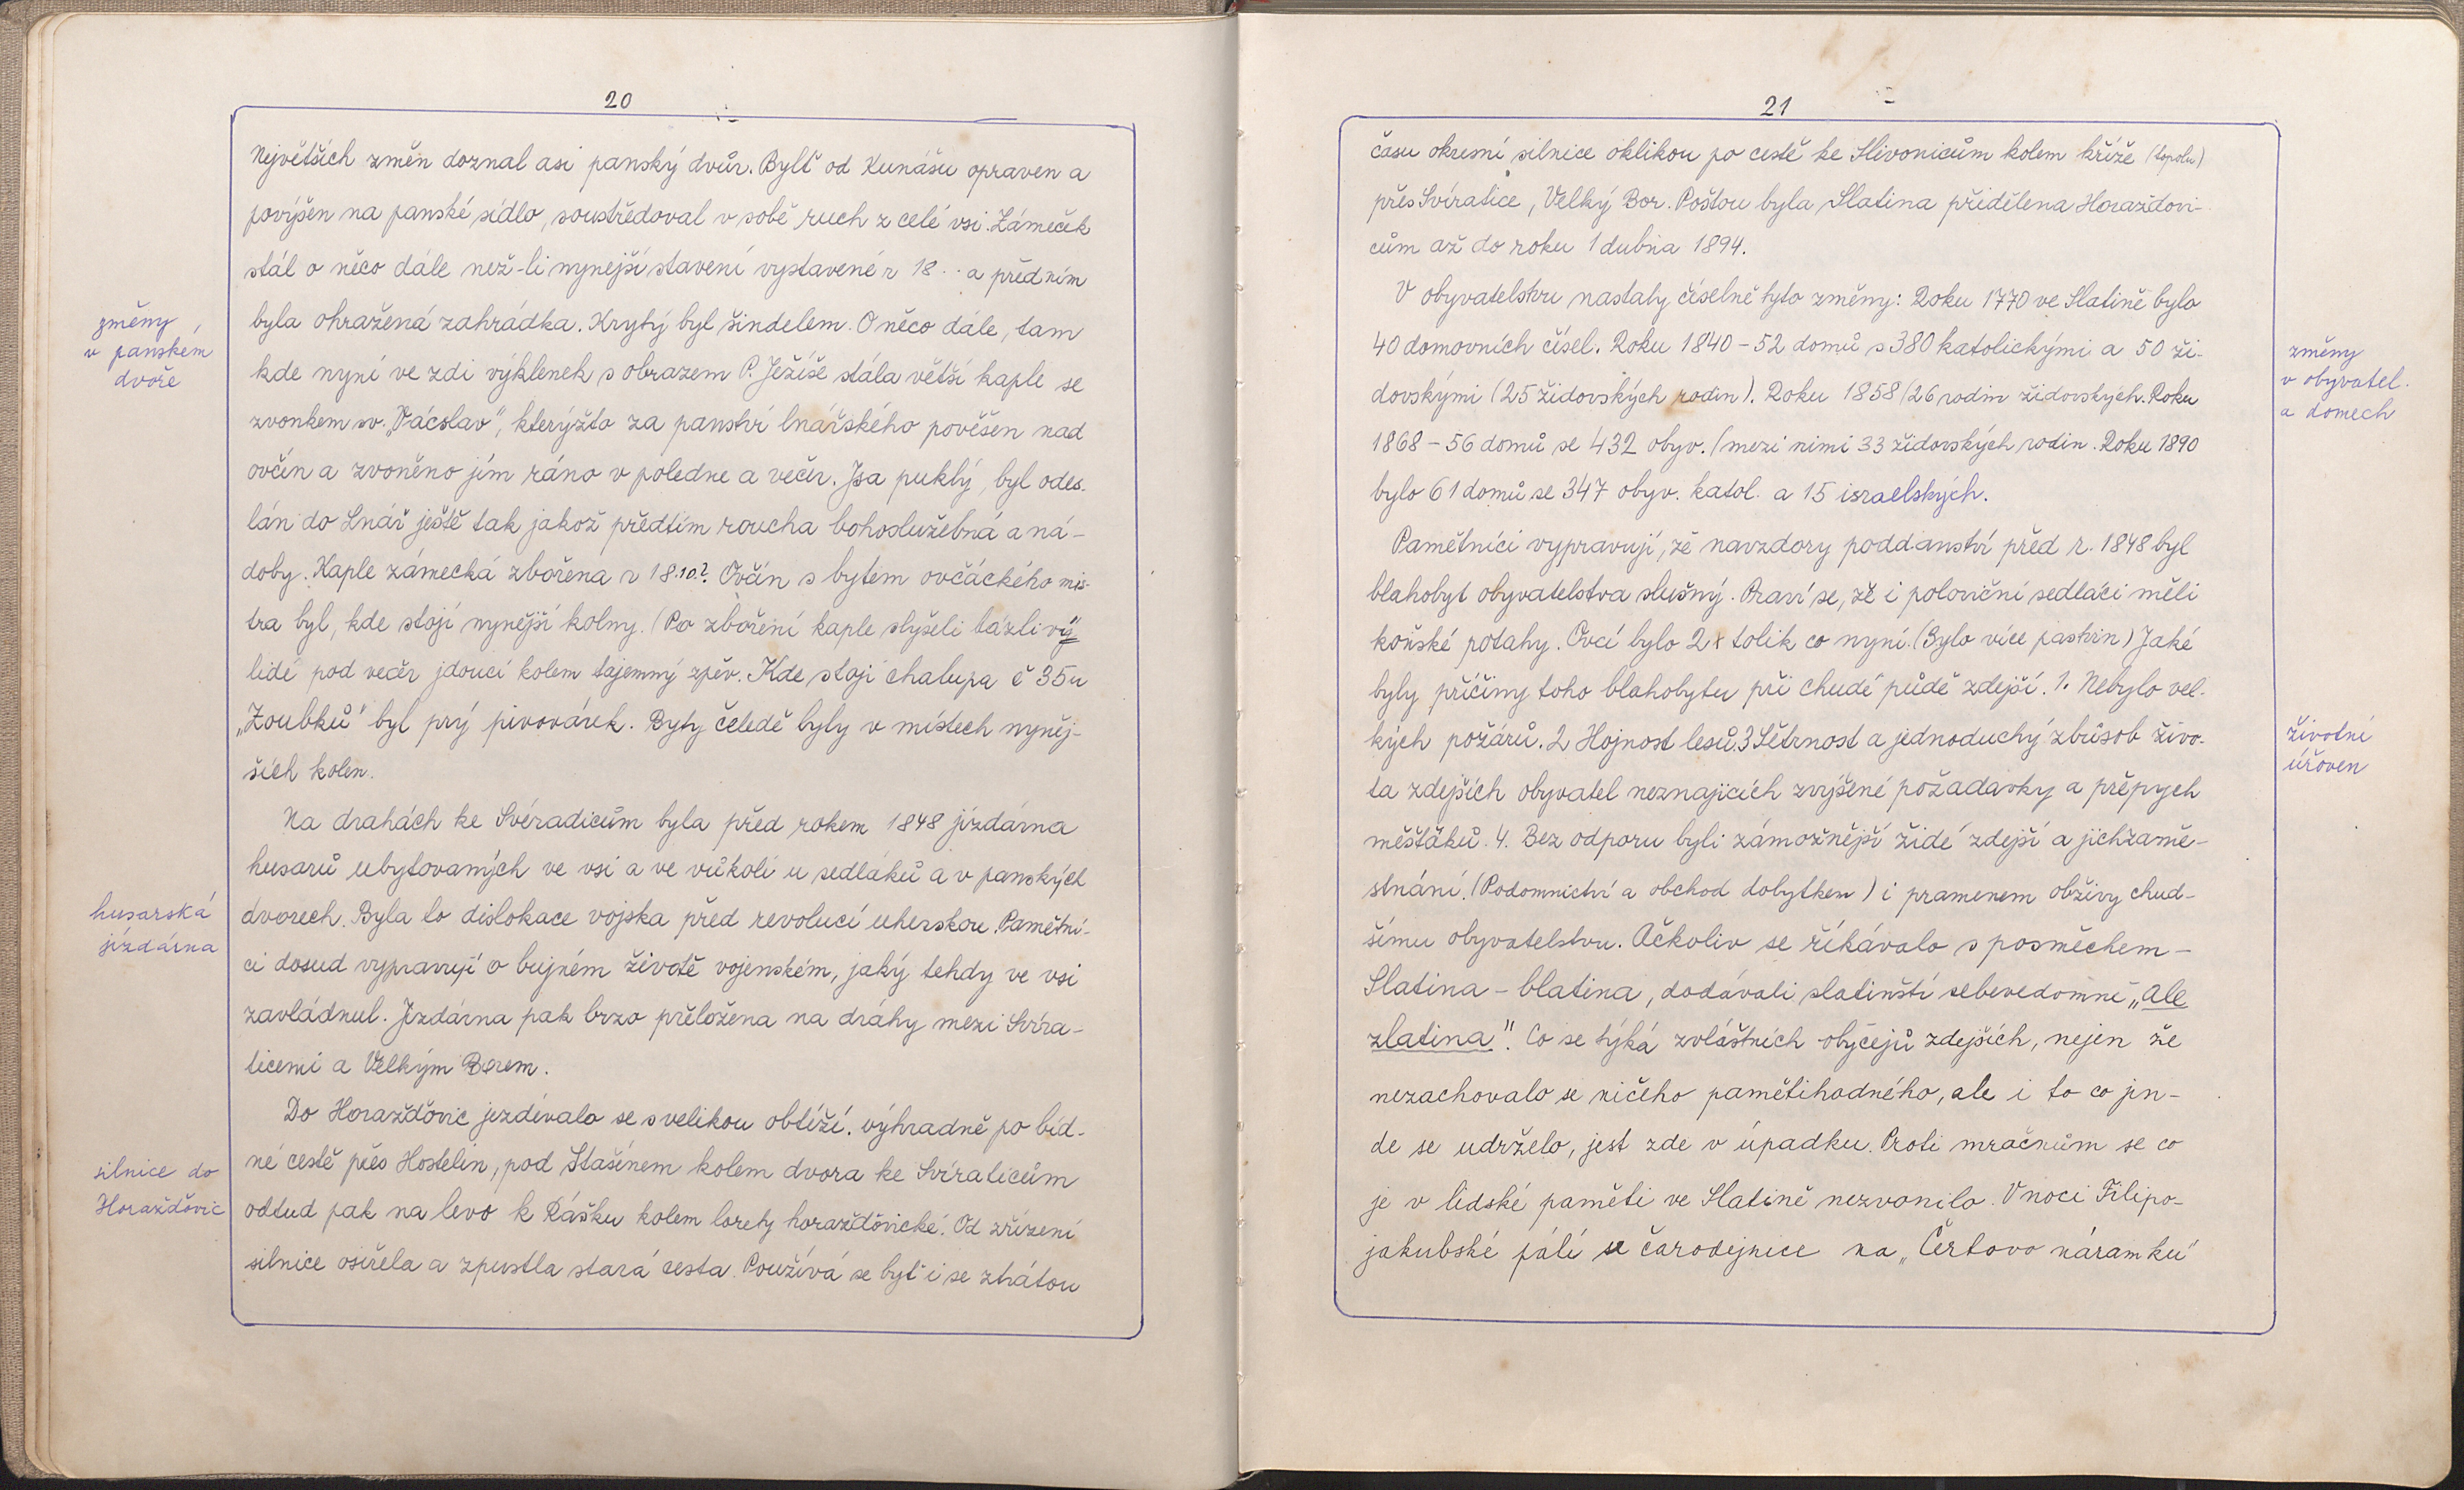 20
Největších změn doznal asi panský dvůr. Bylť od Kunášu opraven a
povýšen na panské sídlo, soustřeďoval v sobě ruch z celé vsi. Zámeček
stál o něco dále než-li nynejší stavení vystavené r 18.. a před ním
byla ohražená zahrádka. Krytý byl šindelem. O něco dále, tam
změny
v panském
dvoře
kde nyní ve zdi výklenek s obrazem P. Ježíše stála větší kaple se
zvonkem sv. „Vácslav", kterýžto za panství lnářského pověšen nad
ovčín a zvoněno jím ráno v poledne a večer. Jsa puklý, byl odes-
lán do Lnář ještě tak jakož předtím roucha bohoslužebná a ná-
doby. Kaple zámecká zbořena r 18.10?. Ovčín s bytem ovčáckého mis-
tra byl, kde stojí nynější kolny. (Po zboření kaple slyšeli bázliví
lidé pod večer jdoucí kolem tajemný zpěv. Kde stojí chalupa č 35 u
„Zoubků" byl prý pivovárek. Byty čeledě byly v místech nyněj-
ších kolen.
Na drahách ke Svéradicům byla před rokem 1848 jízdárna
husarů ubytovaných ve vsi a ve vůkolí u sedláků a v panských
husarská
jízdárna
dvorech. Byla to dislokace vojska před revolucí uherskou. Pamětní-
ci dosud vypravují o bujném životě vojenském, jaký tehdy ve vsi
zavládnul. Jízdárna pak brzo přeložena na dráhy mezi Svíra-
ticemi a Velkým Borem.
Do Horažďovic jezdívalo se s velikou obtíží. výhradně po bíd-
silnice do
Horažďovic
né cestě přes Hostelin, pod Stašínem kolem dvora ke Svíraticům
odtud pak na levo k Rášku kolem lorety horažďovické. Od zřízení
silnice osiřela a zpustla stará cesta. Používá se byť i se ztrátou
21
času okresní silnice oklikou po cestě ke Slivonicům kolem kříže (topolu)
přes Svíratice, Velký Bor. Poštou byla Slatina přidělena Horažďovi-
cům až do roku 1 dubna 1894.
V obyvatelstvu nastaly číselně tyto změny: Roku 1770 ve Slatině bylo
40 domovních čísel. Roku 1840 - 52 domů s 380 katolickými a 50 ži-
změny
v obyvatel.
a domech
dovskými (25 židovských rodin). Roku 1858 (26 rodin židovských. Roku
1868 - 56 domů se 432 obyv. (mezi nimi 33 židovských rodin. Roku 1890
bylo 61 domů se 347 obyv. katol. a 15 israelských.
Pamětníci vypravují, že navzdory poddanství před r. 1848 byl
blahobyt obyvatelstva slušný. Praví se, že i poloviční sedláci měli
koňské potahy. Ovcí bylo 2x tolik co nyní. (Bylo více pastvin) Jaké
byly příčiny toho blahobytu při chudé půdě zdejší. 1. Nebylo vel-
kých požárů. 2 Hojnost lesů. 3 Šětrnost a jednoduchý zbůsob živo-
životní
úroven
ta zdejších obyvatel neznajících zvýšené požadavky a přepych
měšťáků. 4. Bez odporu byli zámožnější židé zdejší a jich zamě-
stnání. (Podomnictví a obchod dobytkem) i pramenem obživy chud-
šímu obyvatelstvu. Ačkoliv se říkávalo s posměchem -
Slatina - blatina, dodávali slatinští sebevedomně „ale
zlatina". Co se týká zvláštních obyčejů zdejších, nejen že
nezachovalo se ničeho pamětihodného, ale i to co jin-
de se udrželo, jest zde v úpadku. Proti mračnům se co
je v lidské paměti ve Slatině nezvonilo. V noci Filipo-
jakubské pálí se čarodejnice na „Čertovo náramku"